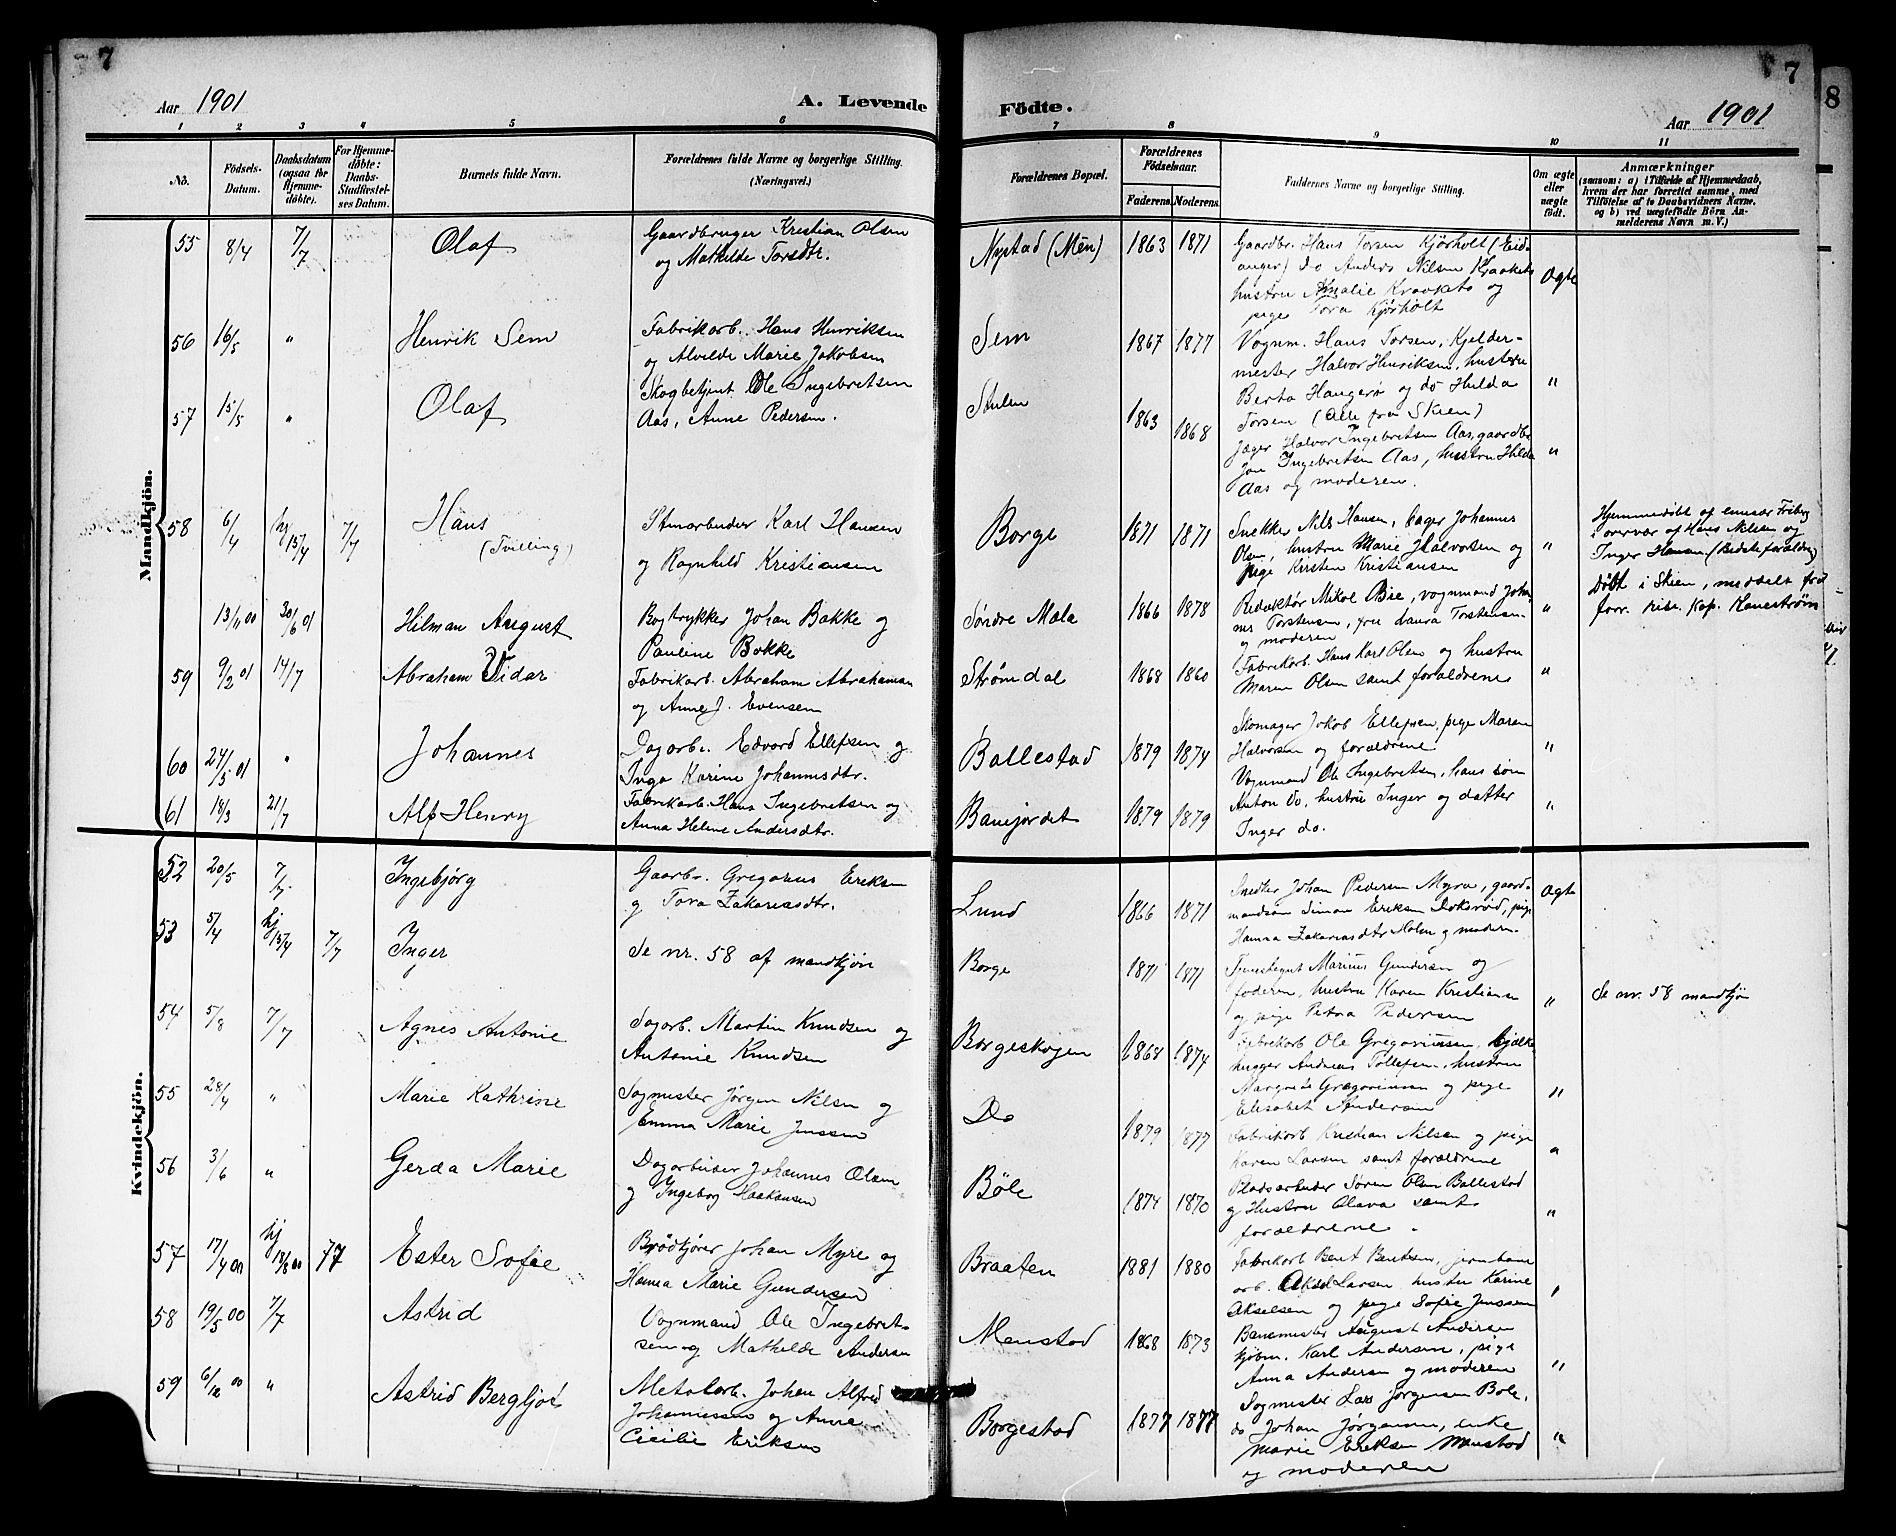 7
Aar 1901
A. Levende
1 2 3 4 5 6
No.
Födsels-Datum.
Daabsdatum (ogsaa for Hjemme-döbte).
For Hjemme-döbte: Daabs-Stadfæstel-ses Datum.
Barnets fulde Navn.
Forældrenes fulde Navne og borgerlige Stilling. (Næringsvei.)
Mandkjön.
55 8/4 7/7 Olaf Gaardbruger Kristian Olsen
og Mathilde Torsdtr.
56 16/5 " Henrik Sem Fabrikarb. Hans Henriksen
og Alvilde Marie Jakobsen
57 15/5 " Olaf Skogbetjent Ole Ingebretsen
Aas, Anne Pedersen.
58 6/4 hj 15/4 7/7 Hans Stenarbeider Karl Hansen
(Tvilling)
og Ragnhild Kristiansen
13/11 00 30/6 01 Hilman August Bogtrykker Johan Bakke og
Pauline Bakke
59 9/2 01 14/7 Abraham Vidar Fabrikarb. Abraham Abrahamsen
og Anne J. Evensen
60 24/5 01 " Johannes Dagarb. Edvard Ellefsen og
Inga Karine Johannesdtr.
61 18/3 21/7 Alf Henry Fabrikarb. Hans Ingebretsen og
Anna Helene Andersdtr.
Kvindekjön.
52 20/5 7/7 Ingebjørg Gaarbr. Gregorius Eriksen
og Tora Zakariasdtr.
53 5/4 hj 15/4 7/7 Inger Se nr. 58 af mandkjön
54 5/8 7/7 Agnes Antonie Sagarb. Martin Knudsen og
Antonie Knudsen
55 28/4 " Marie Kathrine Sagmester Jørgen Nilsen og
Emma Marie Jenssen
56 3/6 " Gerda Marie Dagarbeider Johannes Olsen
og Ingeborg Haakansen
57 17/4 00 hj 18/8 00 7/7 Ester Sofie Brödkjörer Johan Myre og
Hanna Marie Gundersen
58 19/5 00 7/7 Astrid Vognmand Ole Ingebret-
sen og Mathilde Andersen
59 6/12 00 " Astrid Bergljot Metalarb. Johan Alfred
Johannessen og Anne
Cicilie Eriksen
7
8
Födte.
Aar 1901
7 8 9 10 11
Forældrenes Bopæl.
Forældrenes Födselsaar.
Faderens. Moderens.
Faddernes Navne og borgerlige Stilling.
Om ægte eller uægte födt.
Anmærkninger
(saasom: a) i Tilfælde af Hjemmedaab,
hvem der har forrettet samme, med
Tilföielse af to Daabsvidners Navne,
og b) ved uægtefödte Börn An-
melderens Navn m. V.)
Nystad (Mén) 1863 1871 Gaardbr. Hans Torsen Kjørholt (Eid-
anger) Do Anders Nilsen Kraakets
hustru Amalie Kraakets og
pige Tora Kjørholt
Ægte
Sem 1867 1877 Vognm. Hans Torsen, Kjelder-
mester Halvor Henriksen, hustru
Berta Haugerø og do Hulda
Torsen (Alle fra Skien)
"
1863 1868
Jæger Halvor Ingebretsen Aas, gaardbr
Jon Ingebretsen Aas, hustru Hilda
Aas og moderen.
"
Borge 1871 1871 Snekker Nils Hansen, bager Johannes
Olsen, hustru Marie Halvorsen og
pige Kristen Kristiansen
"
Hjemmedöbt af Friberg
i overvær af Hans Nilsen og
Inger Hansen (Bedsteforældre)
Søndre Mæla 1866 1878 Redaktør Mikal Bie, vognmand Johan-
nes Torstensen, fru Laura Torstensen
og moderen
"
Döbt i Skien, meddelt fra
forr. res. kap. Hanestrøm
Strømdal 1868 1860 Fabrikarb. Hans Karl Olsen og hustru
Maren Olsen samt forældrene
"
Ballestad 1879 1874 Skomager Jakob Ellefsen, pige Maren
Halvorsen og forældrene
"
Banejordet 1879 1879 Vognmand Ole Ingebretsen, hans søn
Anton do, hustru Inger og datter
Inger do.
"
Lund 1866 1871 Snedker Johan Pedersen Myra, gaard-
mandsøn Simon Eriksen Doksrød, pige
Hanna Zakariasdtr Molen og moderen.
Ægte
Borge 1871 1871 Tjenestegut Marius Gundersen og
faderen, hustru Karen Kristiansen
og pige Petra Pedersen
"
Se nr. 58 mandkjön
Borgeskogen 1868 1874 Fabrikarb Ole Gregoriussen, bjælke-
hugger Andreas Tollefsen, hustru
Margrete Gregoriussen og pige
Elisabet Andersen
"
Do 1879 1877 Fabrikarb Kristian Nilsen og pige
Karen Larsen samt forældrene
"
Böle 1874 1870 Pladsarbeider Søren Olsen Ballestad
og Hustru Olava samt
forældrene.
"
Braaten 1881 1880 Fabrikarb Bent Bentsen, jernbane
arb. Aksel Larsen, hustru Karine
Akselsen og pige Sofie Jenssen
"
Menstad 1868 1873 Banemester August Andersen
kjöbm. Karl Andersen, pige
Anna Andersen og moderen
"
Borgestad 1877 1877 Sagmester Lars Jørgensen Bole,
do Johan Jørgensen, enke
Marie Eriksen Menstad
og moderen
"